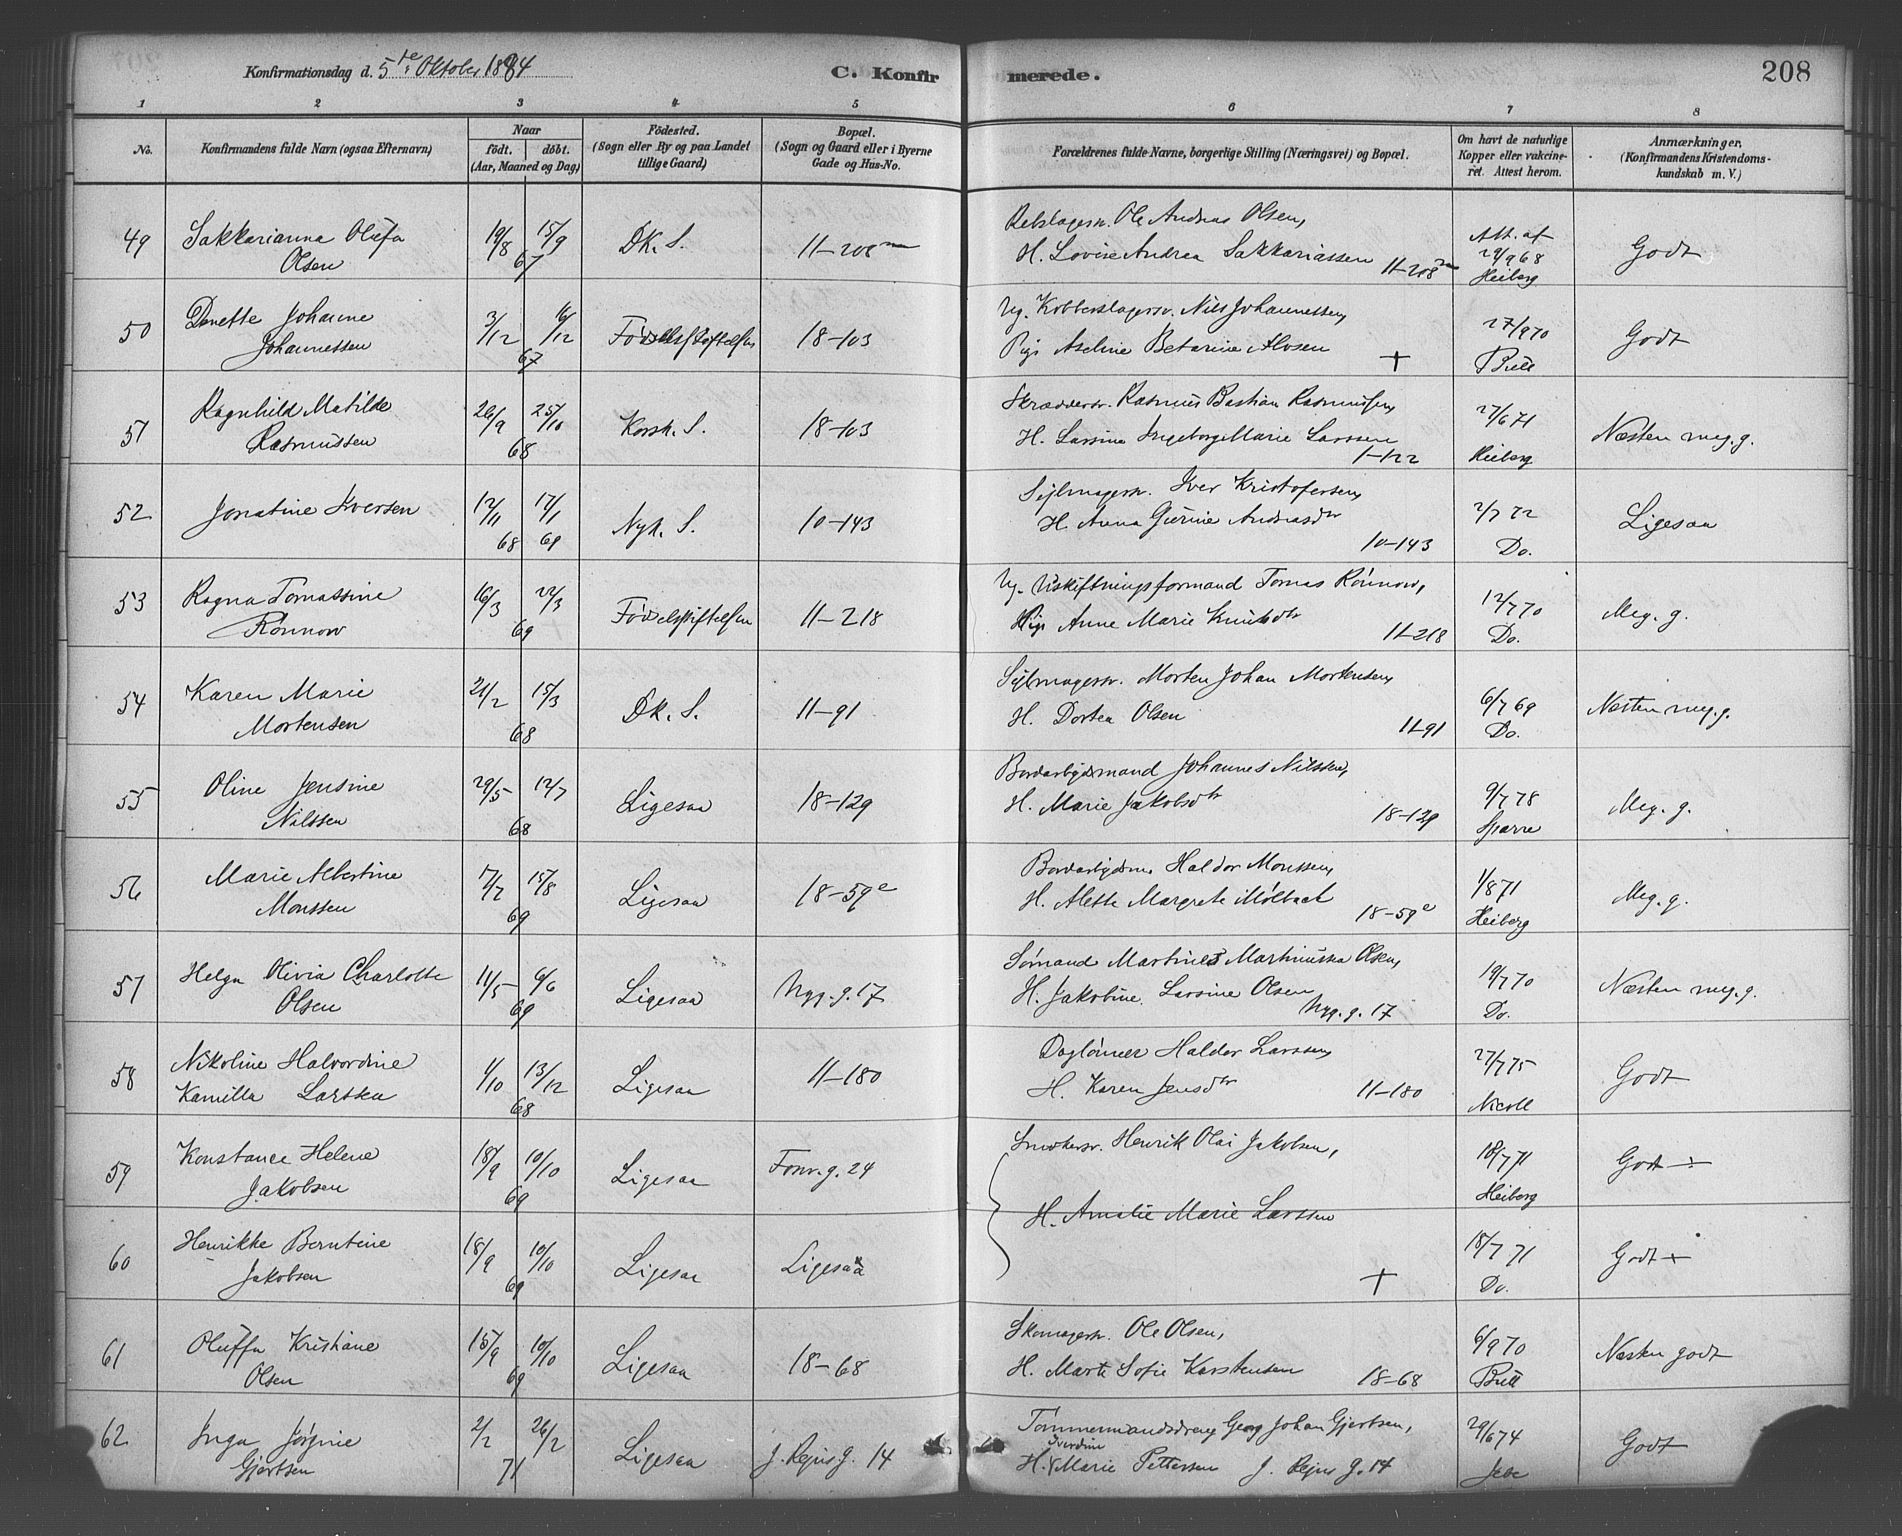 Konfirmationsdag d. 5te Oktober 1884
C. Konfirmerede.
208
1 2 3 4 5 6 7 8
No.
Konfirmandens fulde Navn (ogsaa Efternavn)
Naar
födt. döbt.
(Aar, Maaned og Dag)
Födested.
(Sogn eller By og paa Landet
tillige Gaard)
Bopæl.
(Sogn og Gaard eller i Byerne
Gade og Hus-No.
Forældrenes fulde Navne, borgerlige Stilling (Næringsvei) og Bopæl.
Om havt de naturlige
Kopper eller vakcine-
ret. Attest herom.
Anmærkninger,
(Konfirmandens Kristendoms-
kundskab m. V.)
49 Sakkarianna Olufa 19/8 15/9 DK. S. 11-208 Rebslagersv. Ole Andreas Olsen, Att. af Godt
Olsen 67 H. Lovise Andrea Sakkariassen 11-208 29/9 68
Heiberg
50 Danette Johanne 3/12 16/12 Fødselsstiftelsen 18-103 Ug. Kobberslagersv. Nils Johannessen, 27/9 70 Godt
Johannessen 67 Pige Aseline Betarine Alvsen + Bull
51 Ragnhild Matilde 26/9 25/10 Korsk. S. 18-103 Skræddersv. Rasmus Bastian Rasmussen, 27/6 71 Næsten meg. g.
Rasmussen 68 H. Larsine Ingeborg Marie Larssen 1-122 Heiberg
52 Jonatine Iversen 12/11 17/1 Nyk. S. 10-143 Sejlmagersv. Iver Kristofersen, 2/7 72 Ligesaa
68 69 H. Anna Gurine Andreasdtr 10-143 Do.
53 Ragna Tomassine 16/3 22/3 Fødselsstiftelsen 11-218 Ug. Udskiftningsformand Tomas Rönnow, 12/7 70 Meg. g.
Rönnow 69 Pige Anne Marie Knudsdtr 11-218 Do.
54 Karen Marie 21/2 15/3 DK. S. 11-91 Sejlmagersv. Morten Johan Mortensen, 6/7 69 Næsten meg. g.
Mortensen 68 H. Dortea Olsen 11-91 Do.
55 Oline Jensine 29/5 12/7 Ligesaa 18-129 Bordarbejdsmand Johannes Nilssen, 9/7 78 Meg. g.
Nilssen 68 H. Marie Jakobsdtr 18-129 Sparre
56 Marie Albertine 17/7 15/8 Ligesaa 18-59e Bordarbejdsm. Haldor Monssen, 1/8 71 Meg. g.
Monssen 69 H. Alette Margrete Mölbach 18-59e Heiberg
57 Helga Olivia Charlotte 11/5 6/6 Ligesaa Nyg. g. 17 Sömand Martines Martinuska Olsen, 19/7 70 Næsten meg. g.
Olsen 69 H. Jakobine Larsine Olsen Nyg. g. 17 Do.
58 Nikoline Halvordine 1/10 13/12 Ligesaa 11-180 Daglönner Haldor Larssen, 27/7 75 Godt
Kamilla Larssen 68 H. Karen Jensdtr 11-180 Nicoll
59 Konstance Helene 18/9 10/10 Ligesaa Fosw. g. 24 Smedersv. Henrik Olai Jakobsen, 18/7 71 Godt ÷
Jakobsen 69 H. Amalie Marie Larssen Heiberg
60 Henrikke Berntine 18/9 10/10 Ligesaa Ligesaa 18/7 71 Godt ÷
Jakobsen 69 + Do.
61 Oluffa Kristiane 15/9 10/10 Ligesaa 18-68 Skomagersv. Ole Olsen, 6/9 70 Næsten godt
Olsen 69 H. Marte Sofie Karstensen 18-68 Bull
62 Inga Jörgine 2/2 26/2 Ligesaa J. Rejus g. 14 Tömmermandsdreng Georg Johan Gjertsen, 29/6 74 Godt
Gjertsen 71 H. Iverdine Marie Pettersen J. Rejus g. 14